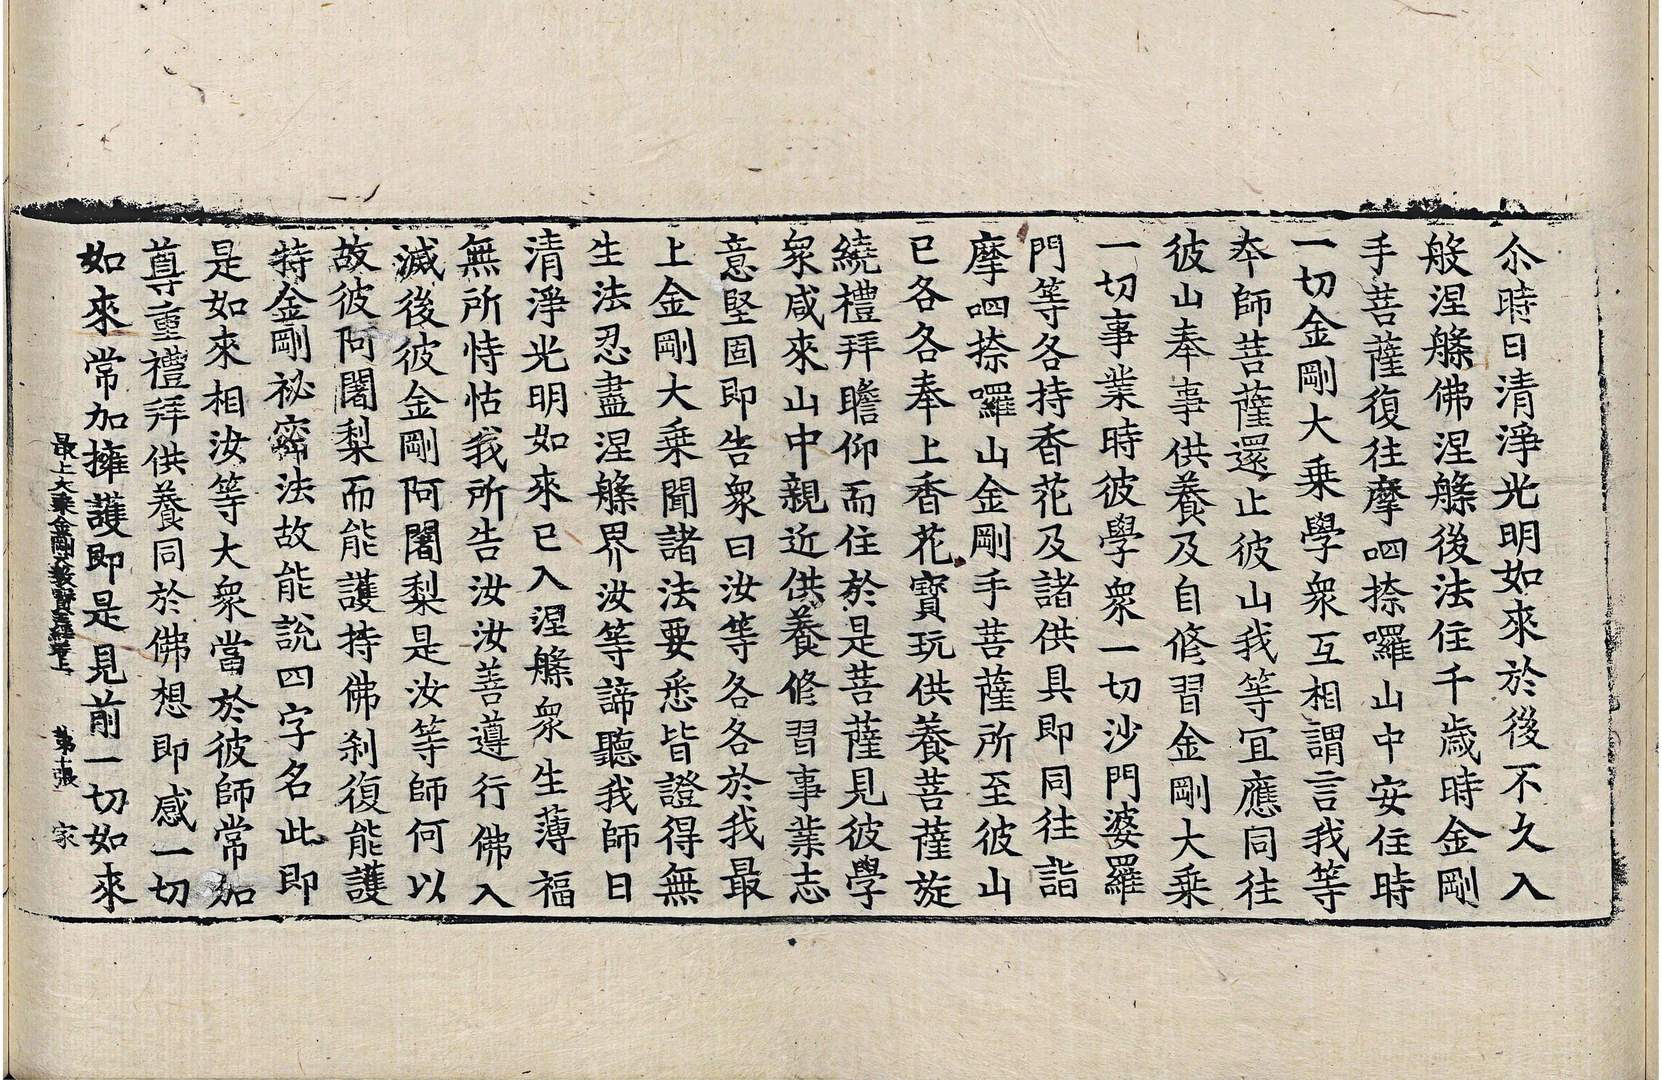 尒時日清淨光明如來於後不久入
般涅槃佛涅槃後法住千歲時金剛
手菩薩復往摩呬捺囉山中安住時
一切金剛大乗學衆互相謂言我等
本師菩薩還止彼山我等宜應同往
彼山奉事供養及自修習金剛大乗
一切事業時彼學衆一切沙門婆羅
門等各持香花及諸供具即同往詣
摩呬捺囉山金剛手菩薩所至彼山
已各各奉上香花寶玩供養菩薩旋
繞禮拜瞻仰而住於是菩薩見彼學
衆咸來山中親近供養修習事業志
意堅固即告衆曰汝等各各於我最
上金剛大乗聞諸法要悉皆證得無
生法忍盡涅槃界汝等諦聽我師日
清淨光明如來已入涅槃衆生薄福
無所恃怙我所告汝汝善遵行佛入
滅後彼金剛阿闍梨是汝等師何以
故彼阿闍梨而能護持佛刹復能護
持金剛祕密法故能說四字名此即
是如來相汝等大衆當於彼師常加
尊重禮拜供養同於佛想即感一切
如來常加擁護即是見前一切如來
最上大乗金剛大教寶王經卷上 第十張 家